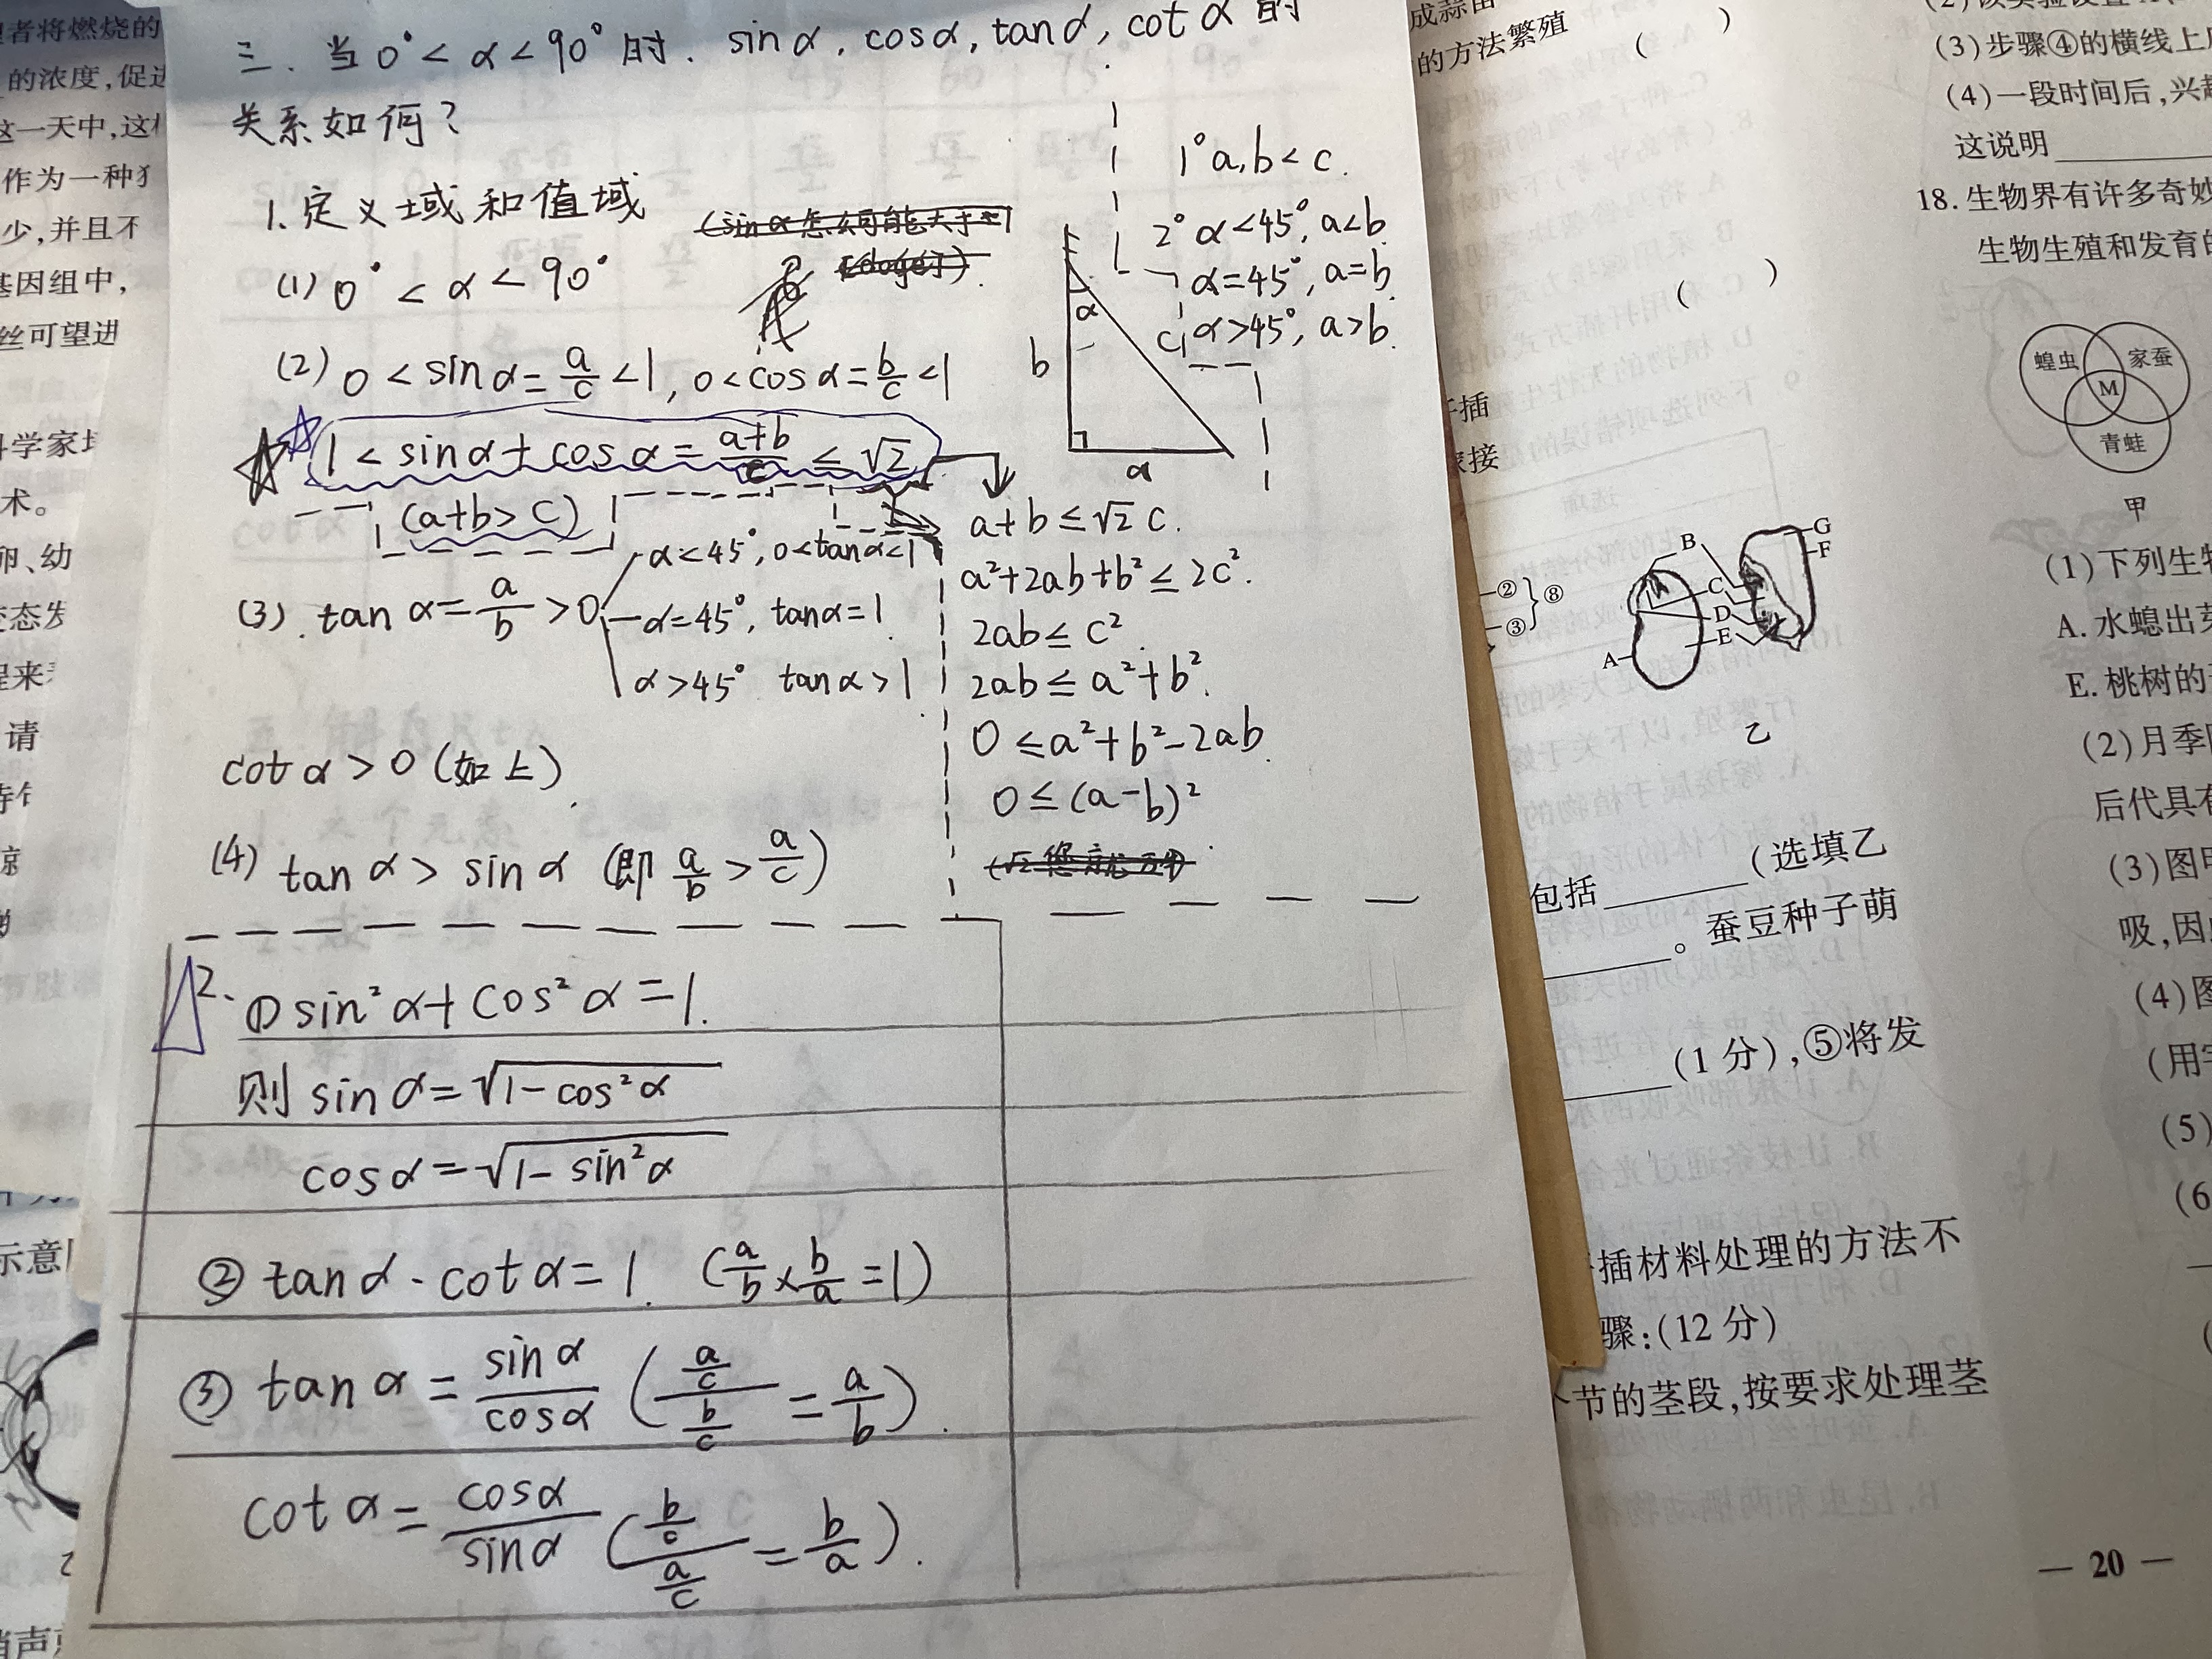 三、当0°<α<90°时. sinα, cosα, tanα, cotα的
关系如何?
1. 定义域和值域
(1) 0° < α < 90°
(2) 0 < sinα = a/c < 1, 0 < cosα = b/c < 1
1 < sinα + cosα = (a+b)/c ≤ √2
(a+b > c)
(3). tanα = a/b > 0
α < 45°, 0 < tanα < 1
α = 45°, tanα = 1
α > 45° tanα > 1
cotα > 0 (如上).
(4) tanα > sinα (即 a/b > a/c)
1° a, b < c.
2° α < 45°, a < b
α = 45°, a = b
α > 45°, a > b
α
b
c
a
a+b ≤ √2 c.
a²+2ab+b² ≤ 2c².
2ab ≤ c².
2ab ≤ a²+b².
0 ≤ a²+b²-2ab.
0 ≤ (a-b)²
2. ① sin²α + cos²α = 1.
则 sinα = √(1-cos²α)
cosα = √(1-sin²α)
② tanα · cotα = 1. (a/b × b/a = 1)
③ tanα = sinα/cosα ((a/c)/(b/c) = a/b).
cotα = cosα/sinα ((b/c)/(a/c) = b/a).
者将燃烧的
的浓度,促进
这一天中,这
作为一种
少,并且不
基因组中,
丝可望进
科学家
术。
卵、幼
变态发
程来
请
示意
的方法繁殖
( )
( )
插
嫁接
②
③
⑧
A
B
C
D
E
F
G
乙
包括______(选填乙
______。蚕豆种子萌
______(1分),⑤将发
插材料处理的方法不
骤:(12分)
个节的茎段,按要求处理茎
(3)步骤④的横线上
(4)一段时间后,兴
这说明______
18.生物界有许多奇妙
生物生殖和发育的
蝗虫
家蚕
M
青蛙
甲
(1)下列生
A.水螅出芽
E.桃树的
(2)月季
后代具有
(3)图
吸,因
(4)图
(用
(5)
(6
— 20 —